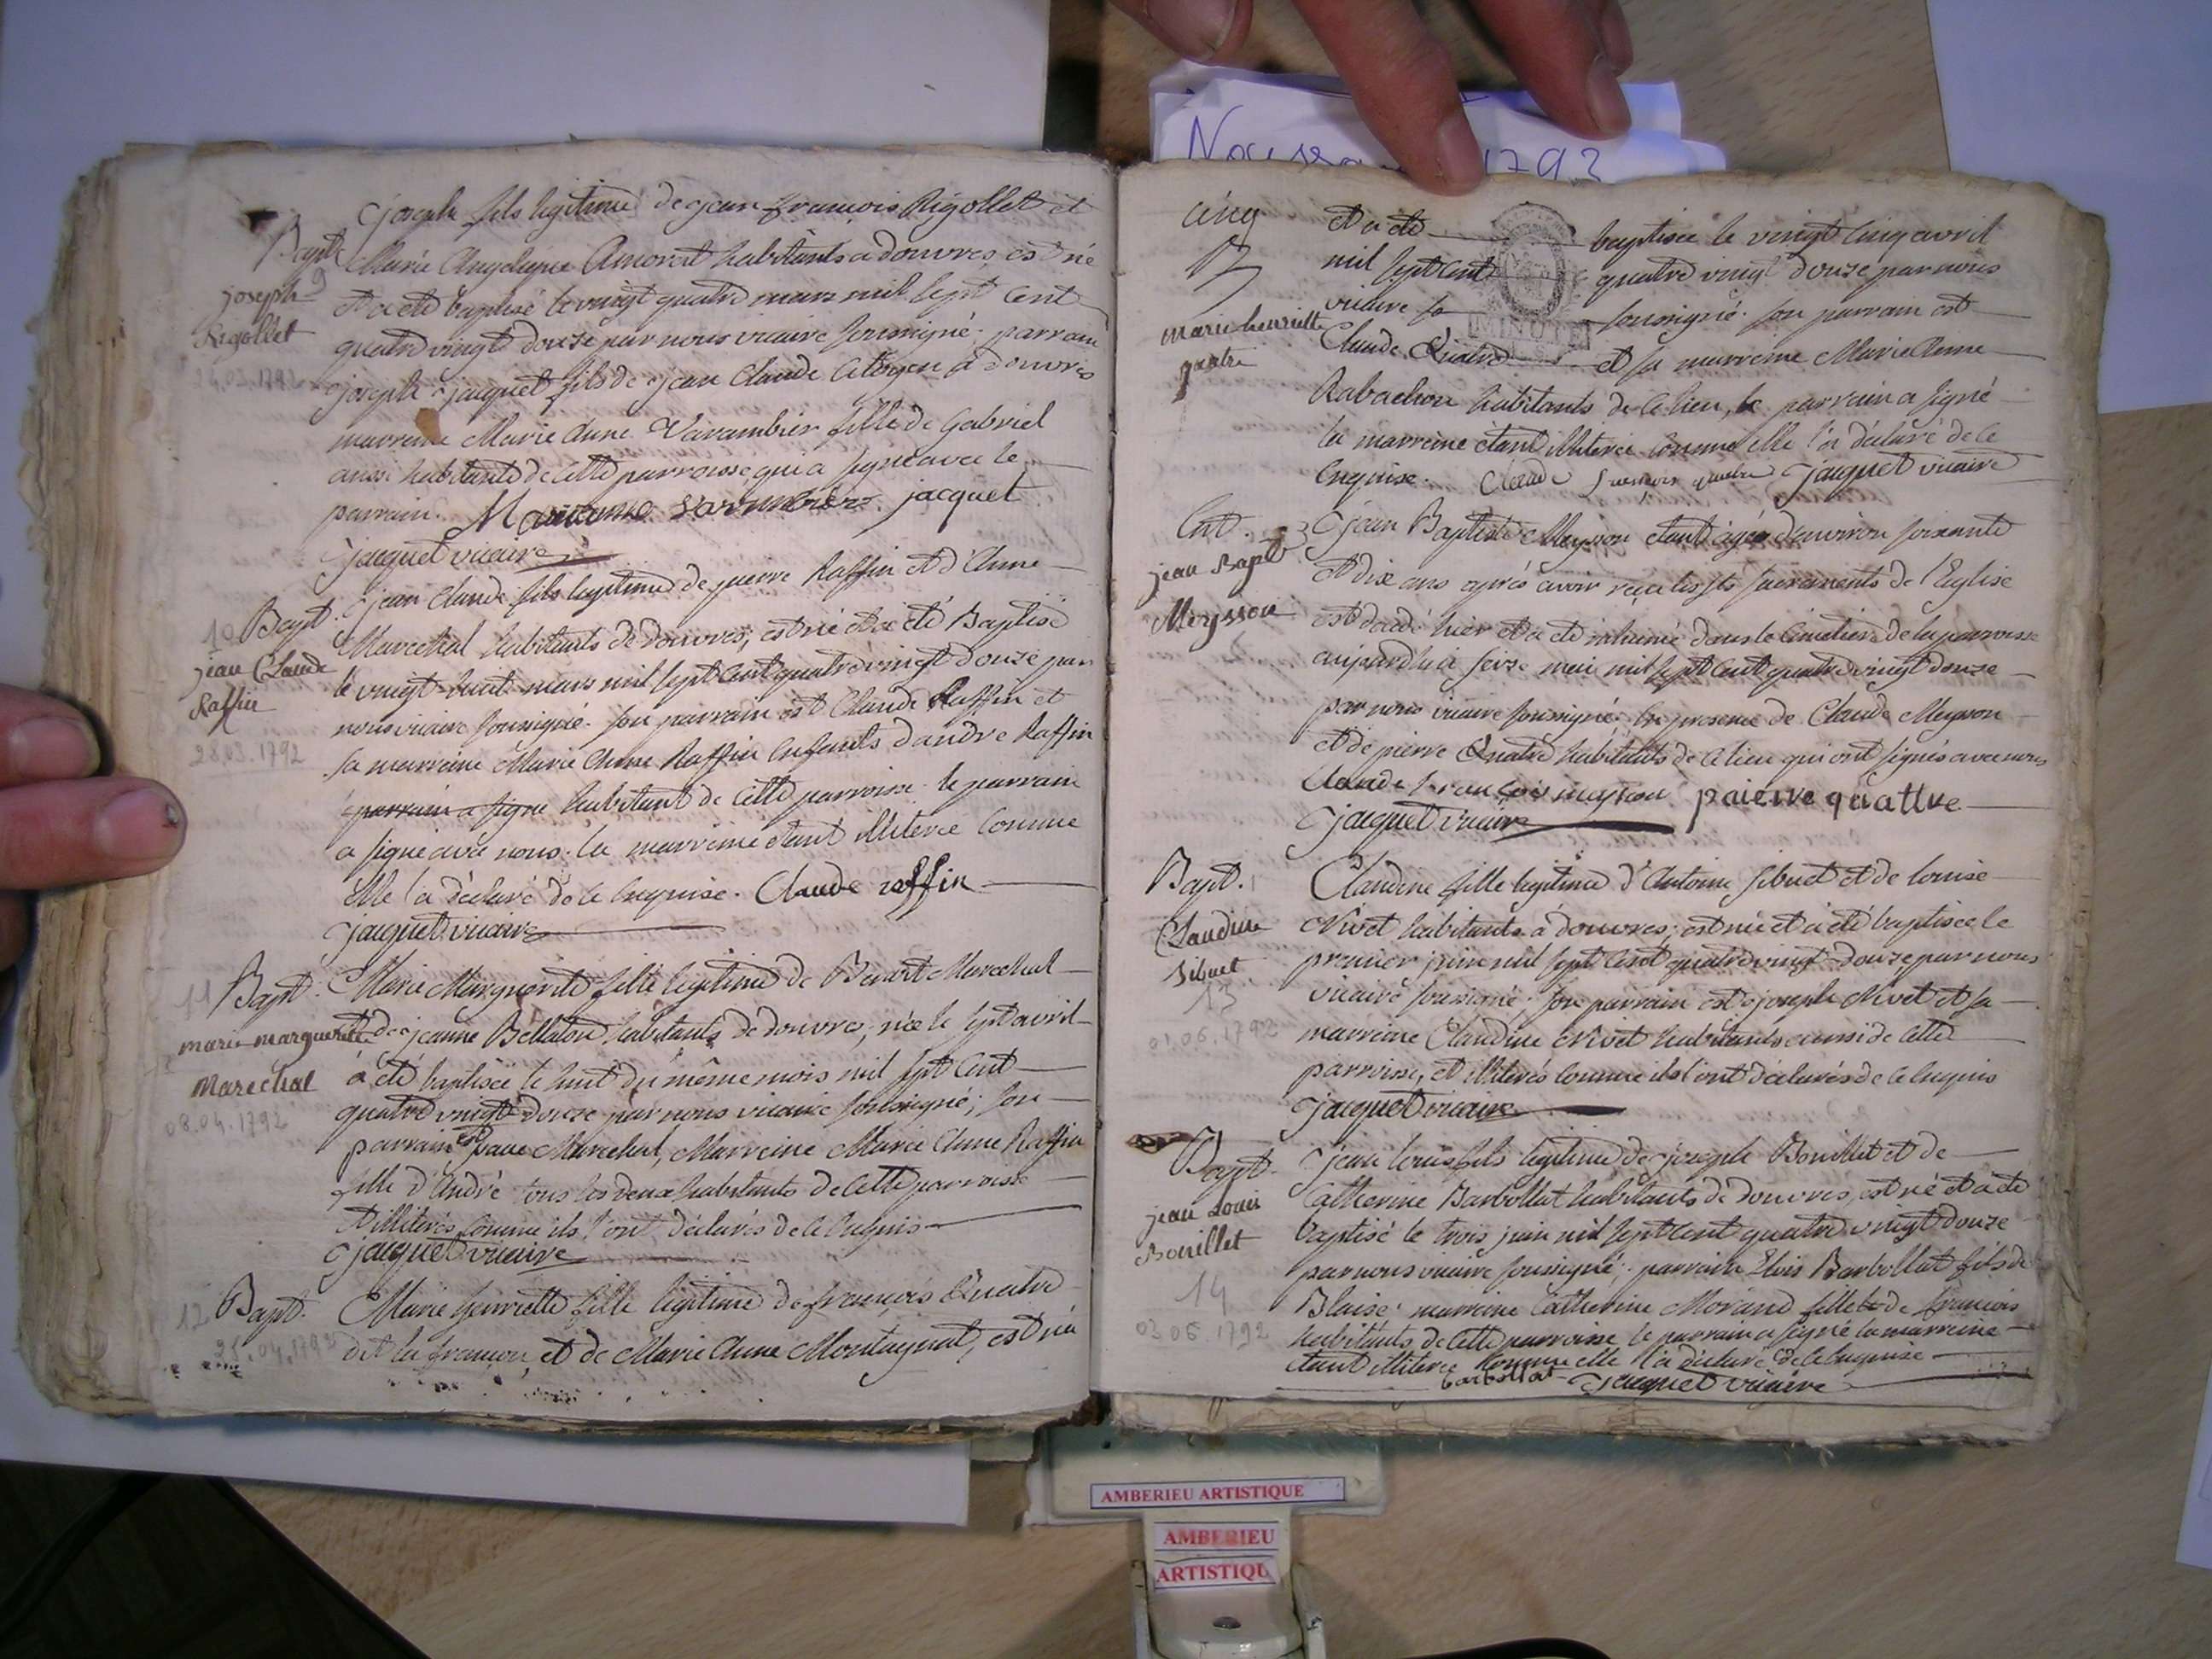 joseph fils legitime de jean françois Rigollet et
Bapt. 9
joseph
Rigollet
24.03.1792
Marie Angelique Amoret habitants a douvres, est né
et a eté baptisé le vingt quatre mars mil sept cent
quatre vingt douze par nous vicaire soussigné. parrain
joseph jacquet fils de jean Claude Citoyen a douvres
marreine Marie Anne Varambier fille de Gabriel
aussi habitante de cette parroisse, qui a signé avec le
parrain. jacquet
jacquet vicaire
10 Bapt.
jean Claude
Raffin
28.03.1792
jean Claude fils legitime de pierre Raffin et d'Anne
Marechal habitants de douvres, est né et a eté Baptisé
le vingt huit mars mil sept cent quatre vingt douze par
nous vicaire soussigné. son parrain est Claude Raffin et
sa marreine Marie Anne Raffin enfants d'andre Raffin
parrain a signe habitant de cette parroisse. le parrain
a signé avec nous. la marreine etant illiterée comme
Elle l'a déclaré de ce enquise. Claude raffin
jacquet vicaire
11 Bapt.
marie marguerite
Marechal
08.04.1792
Marie Marguerite fille legitime de Benoit Marechal
et de jeanne Bellaton habitants de douvres, née le sept avril
a été baptisée le huit du même mois mil sept cent
quatre vingt douze par nous vicaire soussigné; son
parrain est Marechal, Marreine Marie Anne Raffin
fille d'André tous les deux habitants de cette parroisse
et illiterés comme ils l'ont déclarés de ce enquis
jacquet vicaire
12 Bapt.
25.04.1792
Marie henriette fille legitime de françois Quatre
dit la françon, et de Marie Anne Montagnat, est née
Nou 1792
cinq
marie henriette
quatre
et a eté baptisée le vingt cinq avril
mil sept cent quatre vingt douze par nous
vicaire soussigné. son parrain est
Claude Quatre et sa marreine Marie Anne
Rabachon habitants de ce lieu, le parrain a signé
la marreine etant illiterée comme elle l'a déclaré de ce
enquise. Claude quatre jacquet vicaire
Ent.
jean Bapt
Meysson
jean Baptiste Meysson etant agée d'environ soixante
et dix ans après avoir reçu les sts sacrements de l'Eglise
est décedé hier et a eté inhumé dans le Cimetiere de la parroisse
aujourd'hui seize mai mil sept cent quatre vingt douze
par nous vicaire soussigné. En presence de Claude Meysson
et de pierre Quatre habitants de ce lieu qui ont signés avec nous
paierre quattre
jacquet vicaire
Bapt.
Claudine
Sibuet
13
01.06.1792
Claudine fille legitime d'Antoine Sibuet et de louise
Nivet habitants à douvres; est née et a eté baptisée le
premier juin mil sept cent quatre vingt douze par nous
vicaire soussigné; son parrain est joseph Nivet et sa
marreine Claudine Nivet habitants aussi de cette
parroisse, et illiterés comme ils l'ont déclarés de ce enquis
jacquet vicaire
Bapt.
jean Louis
Bouillet
14
03.06.1792
jean louis fils legitime de joseph Bouillet et de
Catherine Barbollat habitants de douvres, est né et a eté
baptisé le trois juin mil sept cent quatre vingt douze
par nous vicaire soussigné; parrain Elois Barbollat fils de
Blaise; marreine Catherine Morand fille de francois
habitants de cette parroisse le parrain a signé la marreine
etant illiterée comme elle l'a declaré de ce enquise
barbollat jacquet vicaire
AMBERIEU ARTISTIQUE
AMBERIEU
ARTISTIQU